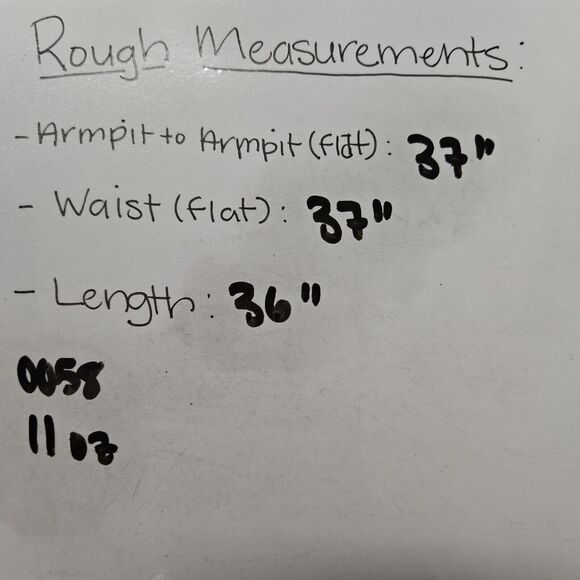 Rough Measurements:
- Armpit to Armpit (flat): 37"
- Waist (flat): 37"
- Length: 36"
0058
1107